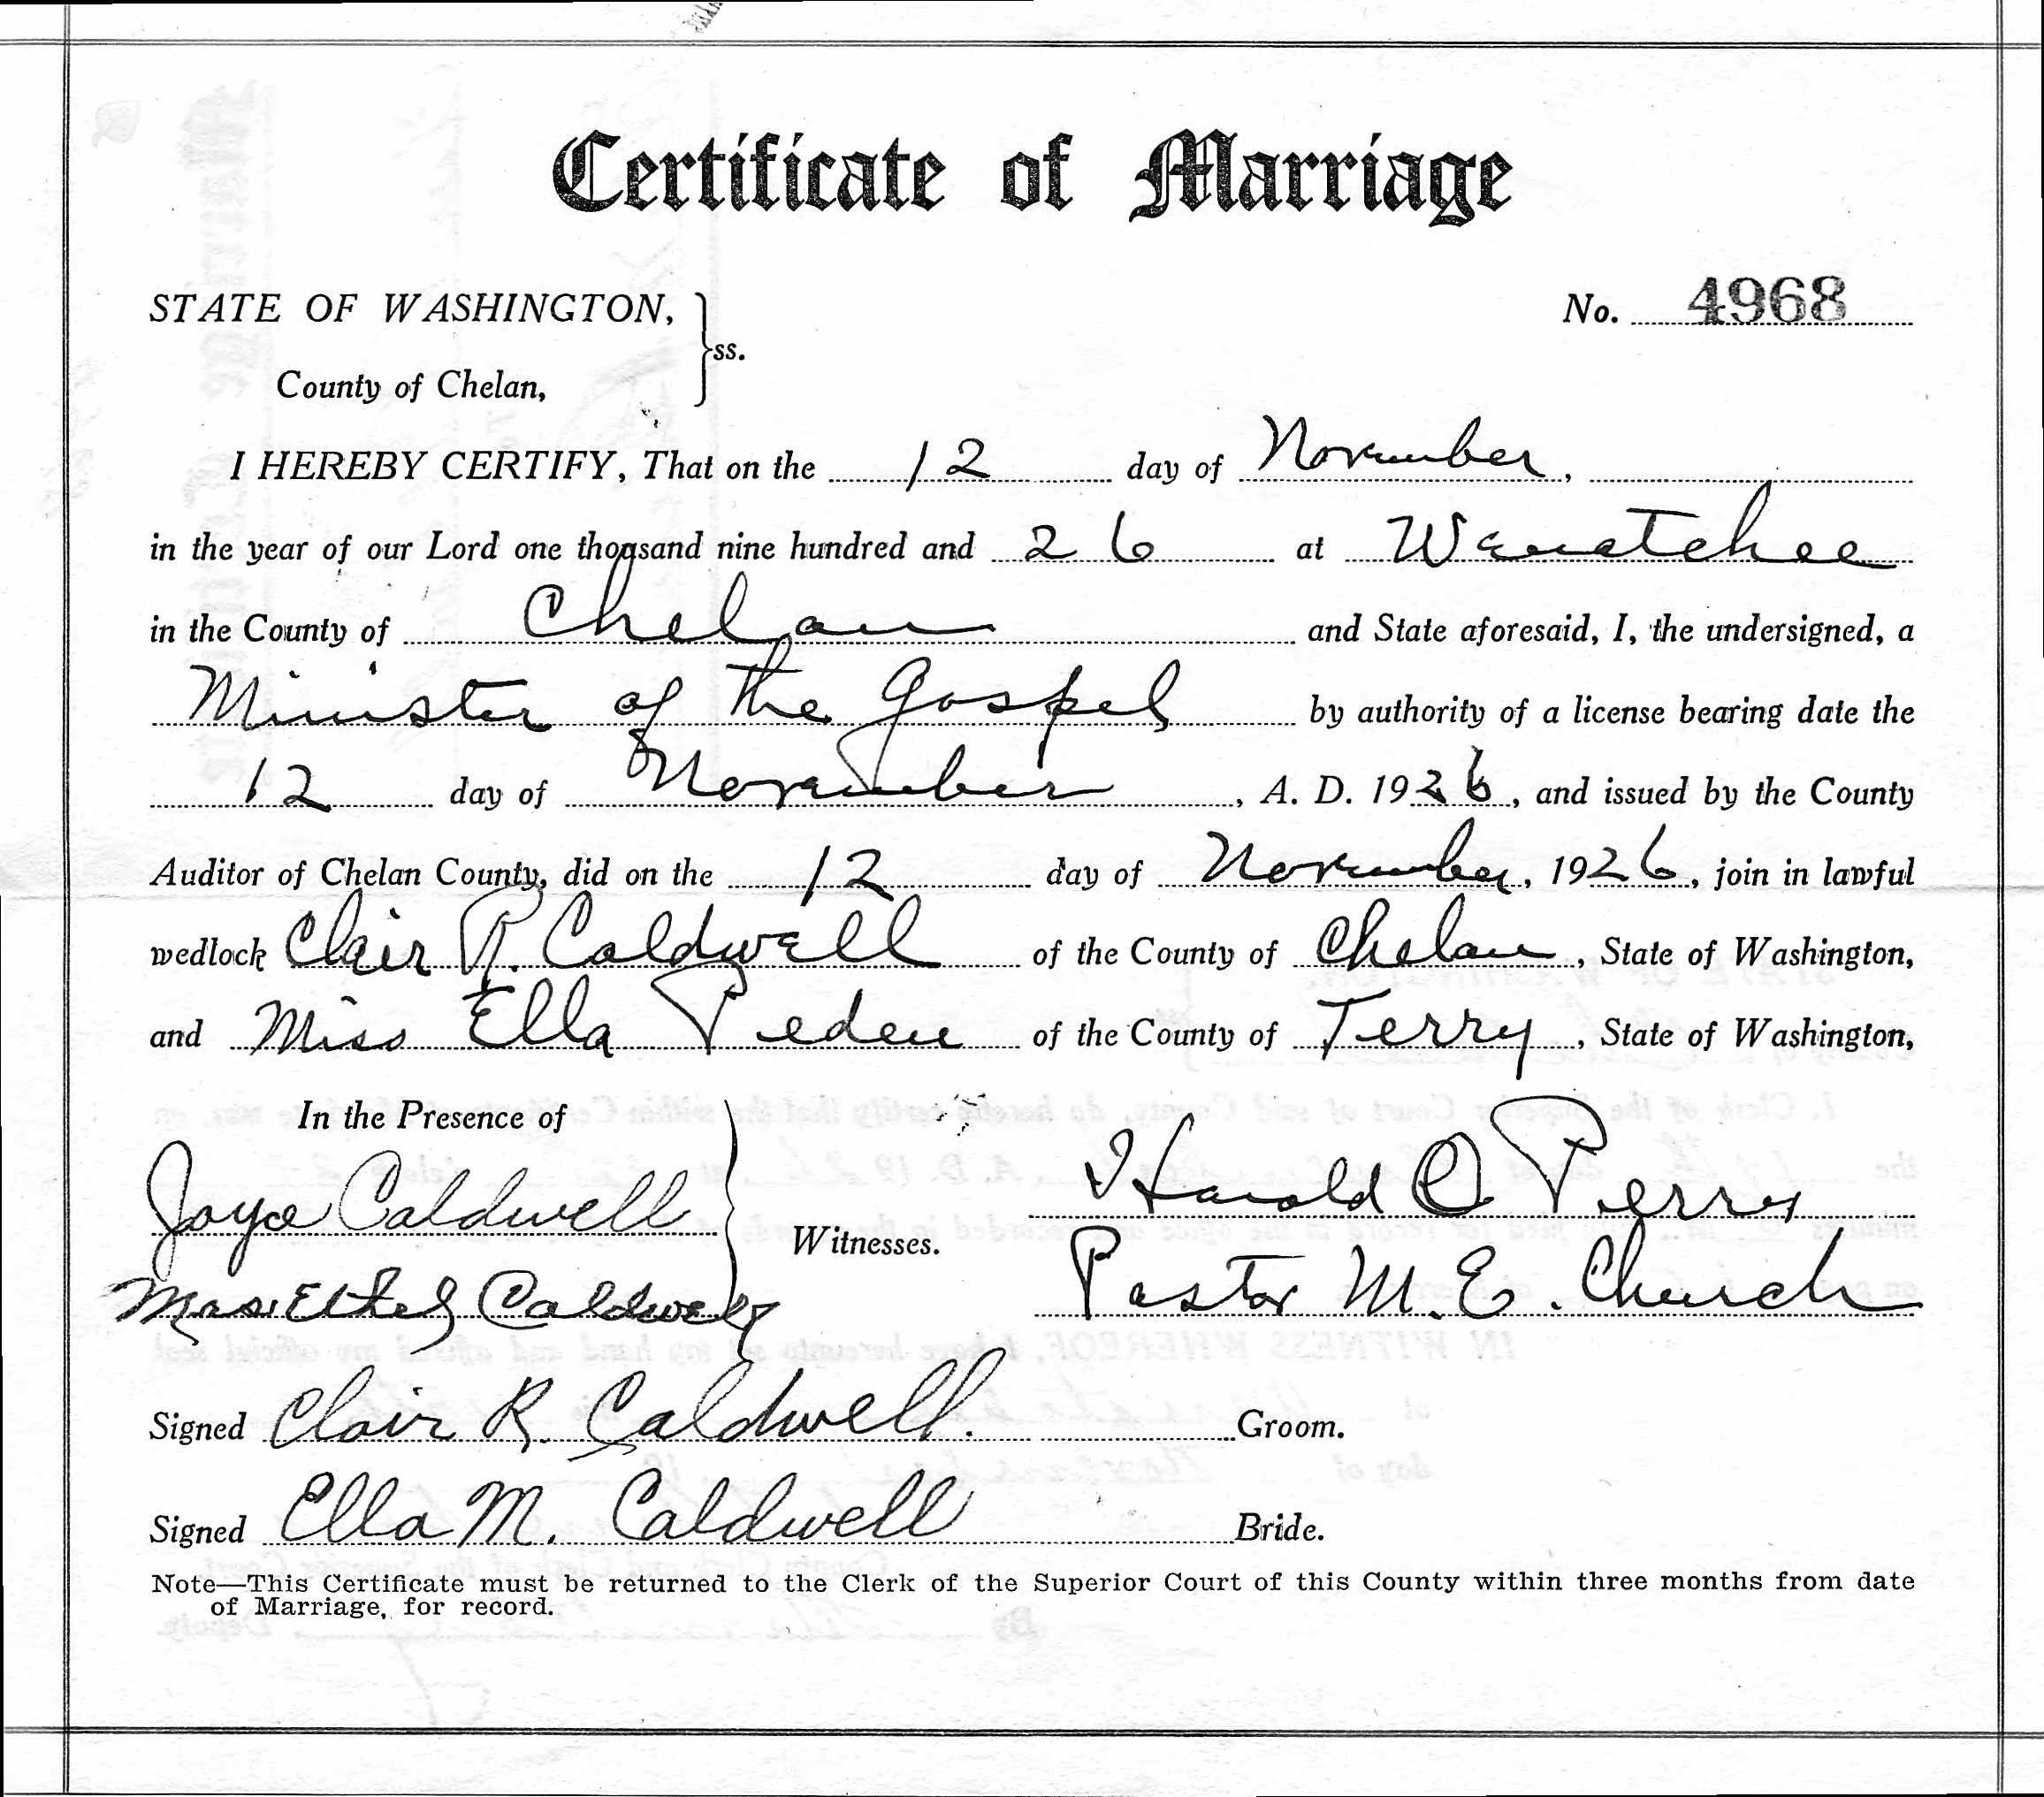 Certificate of Marriage
STATE OF WASHINGTON,
ss.
No. 4968
County of Chelan,
I HEREBY CERTIFY, That on the 12 day of November,
in the year of our Lord one thousand nine hundred and 26 at Wenatchee
in the County of Chelan and State aforesaid, I, the undersigned, a
Minister of the Gospel by authority of a license bearing date the
12 day of November, A. D. 1926, and issued by the County
Auditor of Chelan County, did on the 12 day of November, 1926, join in lawful
wedlock Clair R. Caldwell of the County of Chelan, State of Washington,
and Miss Ella Peden of the County of Ferry, State of Washington,
In the Presence of
Joyce Caldwell
Witnesses.
Harold O Perry
Mrs. Ethel Caldwell
Pastor M.E. Church
Signed Clair R. Caldwell. Groom.
Signed Ella M. Caldwell Bride.
Note—This Certificate must be returned to the Clerk of the Superior Court of this County within three months from date
of Marriage, for record.